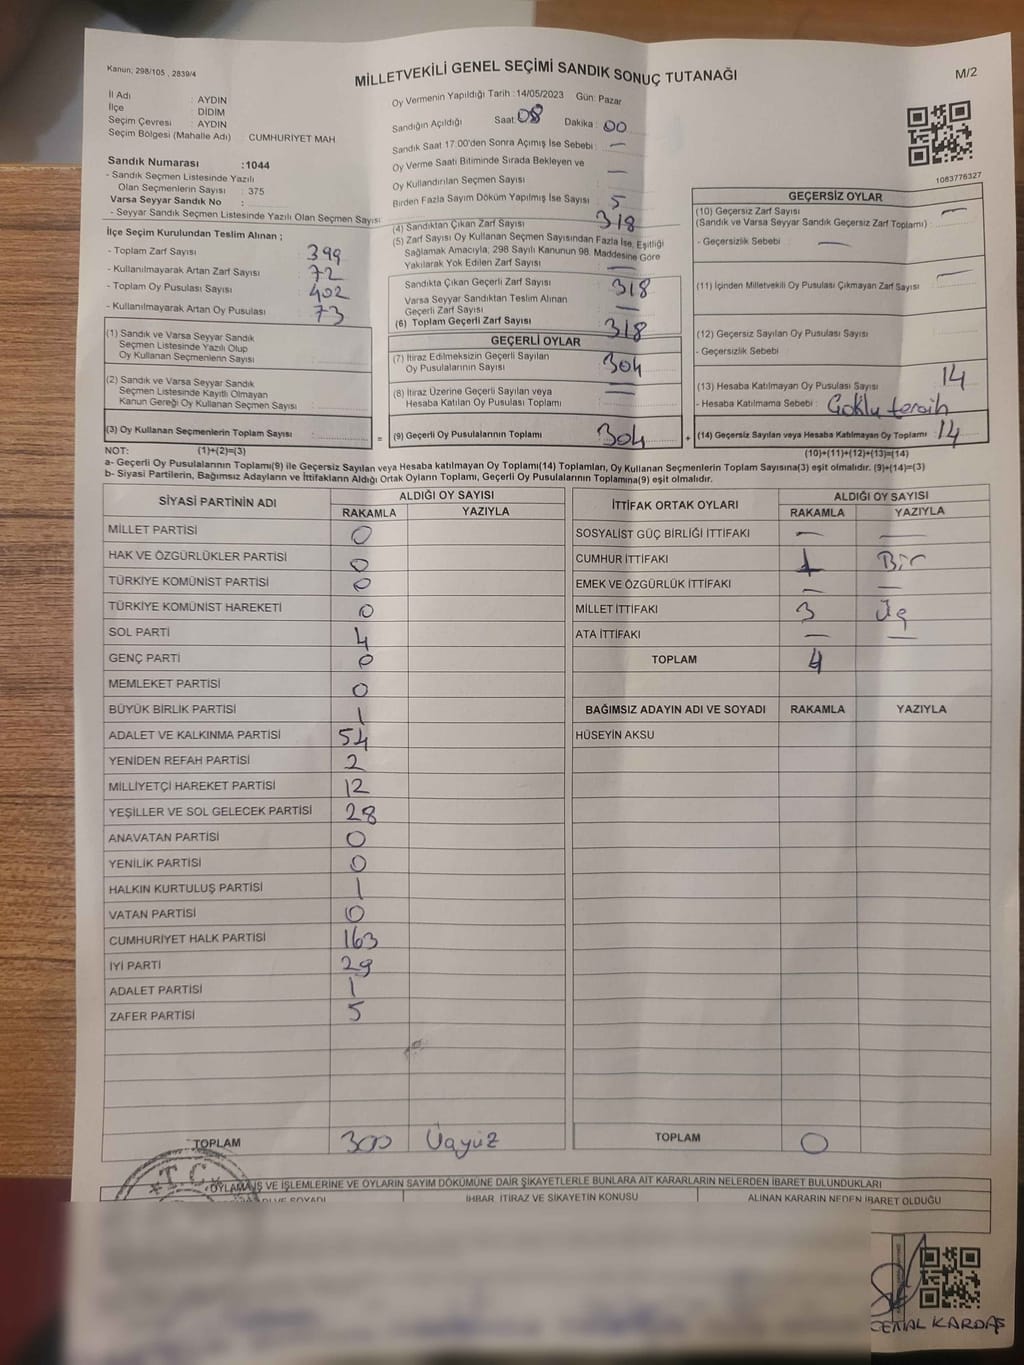 Kanun; 298/105 , 2839/4
MİLLETVEKİLİ GENEL SEÇİMİ SANDIK SONUÇ TUTANAĞI
M/2
İl Adı : AYDIN
İlçe : DİDİM
Seçim Çevresi : AYDIN
Seçim Bölgesi (Mahalle Adı) : CUMHURİYET MAH
Sandık Numarası :1044
- Sandık Seçmen Listesinde Yazılı
Olan Seçmenlerin Sayısı : 375
Varsa Seyyar Sandık No :
- Seyyar Sandık Seçmen Listesinde Yazılı Olan Seçmen Sayısı :
İlçe Seçim Kurulundan Teslim Alınan ;
- Toplam Zarf Sayısı : 399
- Kullanılmayarak Artan Zarf Sayısı : 72
- Toplam Oy Pusulası Sayısı : 402
- Kullanılmayarak Artan Oy Pusulası : 73
(1) Sandık ve Varsa Seyyar Sandık
Seçmen Listesinde Yazılı Olup
Oy Kullanan Seçmenlerin Sayısı :
(2) Sandık ve Varsa Seyyar Sandık
Seçmen Listesinde Kayıtlı Olmayan
Kanun Gereği Oy Kullanan Seçmen Sayısı :
(3) Oy Kullanan Seçmenlerin Toplam Sayısı :
Oy Vermenin Yapıldığı Tarih : 14/05/2023 Gün: Pazar
Sandığın Açıldığı Saat: 08 Dakika : 00
Sandık Saat 17:00'den Sonra Açımış İse Sebebi : —
Oy Verme Saati Bitiminde Sırada Bekleyen ve
Oy Kullandırılan Seçmen Sayısı : —
Birden Fazla Sayım Döküm Yapılmış İse Sayısı : 5
(4) Sandıktan Çıkan Zarf Sayısı : 318
(5) Zarf Sayısı Oy Kullanan Seçmen Sayısından Fazla İse, Eşitliği
Sağlamak Amacıyla; 298 Sayılı Kanunun 98. Maddesine Göre
Yakılarak Yok Edilen Zarf Sayısı : —
Sandıkta Çıkan Geçerli Zarf Sayısı : 318
Varsa Seyyar Sandıktan Teslim Alınan
Geçerli Zarf Sayısı : —
(6) Toplam Geçerli Zarf Sayısı : 318
GEÇERLİ OYLAR
(7) İtiraz Edilmeksizin Geçerli Sayılan
Oy Pusulalarının Sayısı : 304
(8) İtiraz Üzerine Geçerli Sayılan veya
Hesaba Katılan Oy Pusulası Toplamı : —
= (9) Geçerli Oy Pusulalarının Toplamı : 304
1083776327
GEÇERSİZ OYLAR
(10) Geçersiz Zarf Sayısı
(Sandık ve Varsa Seyyar Sandık Geçersiz Zarf Toplamı) : —
- Geçersizlik Sebebi : —
(11) İçinden Milletvekili Oy Pusulası Çıkmayan Zarf Sayısı : —
(12) Geçersiz Sayılan Oy Pusulası Sayısı :
- Geçersizlik Sebebi :
(13) Hesaba Katılmayan Oy Pusulası Sayısı : 14
- Hesaba Katılmama Sebebi : Çoklu tercih
+ (14) Geçersiz Sayılan veya Hesaba Katılmayan Oy Toplamı : 14
NOT: (1)+(2)=(3)
(10)+(11)+(12)+(13)=(14)
a- Geçerli Oy Pusulalarının Toplamı(9) ile Geçersiz Sayılan veya Hesaba katılmayan Oy Toplamı(14) Toplamları, Oy Kullanan Seçmenlerin Toplam Sayısına(3) eşit olmalıdır. (9)+(14)=(3)
b- Siyasi Partilerin, Bağımsız Adayların ve İttifakların Aldığı Ortak Oyların Toplamı, Geçerli Oy Pusulalarının Toplamına(9) eşit olmalıdır.
SİYASİ PARTİNİN ADI ALDIĞI OY SAYISI
RAKAMLA YAZIYLA
MİLLET PARTİSİ 0
HAK VE ÖZGÜRLÜKLER PARTİSİ 0
TÜRKİYE KOMÜNİST PARTİSİ 0
TÜRKİYE KOMÜNİST HAREKETİ 0
SOL PARTİ 4
GENÇ PARTİ 0
MEMLEKET PARTİSİ 0
BÜYÜK BİRLİK PARTİSİ 1
ADALET VE KALKINMA PARTİSİ 54
YENİDEN REFAH PARTİSİ 2
MİLLİYETÇİ HAREKET PARTİSİ 12
YEŞİLLER VE SOL GELECEK PARTİSİ 28
ANAVATAN PARTİSİ 0
YENİLİK PARTİSİ 0
HALKIN KURTULUŞ PARTİSİ 1
VATAN PARTİSİ 0
CUMHURİYET HALK PARTİSİ 163
İYİ PARTİ 29
ADALET PARTİSİ 1
ZAFER PARTİSİ 5
TOPLAM 300 Üçyüz
İTTİFAK ORTAK OYLARI ALDIĞI OY SAYISI
RAKAMLA YAZIYLA
SOSYALİST GÜÇ BİRLİĞİ İTTİFAKI — —
CUMHUR İTTİFAKI 1 Bir
EMEK VE ÖZGÜRLÜK İTTİFAKI — —
MİLLET İTTİFAKI 3 Üç
ATA İTTİFAKI — —
TOPLAM 4
BAĞIMSIZ ADAYIN ADI VE SOYADI RAKAMLA YAZIYLA
HÜSEYİN AKSU
TOPLAM 0
T.C.
OYLAMA İŞ VE İŞLEMLERİNE VE OYLARIN SAYIM DÖKÜMÜNE DAİR ŞİKAYETLERLE BUNLARA AİT KARARLARIN NELERDEN İBARET BULUNDUKLARI
İHBAR, İTİRAZ VE ŞİKAYETİN KONUSU ALINAN KARARIN NEDEN İBARET OLDUĞU
CEMAL KARDAŞ